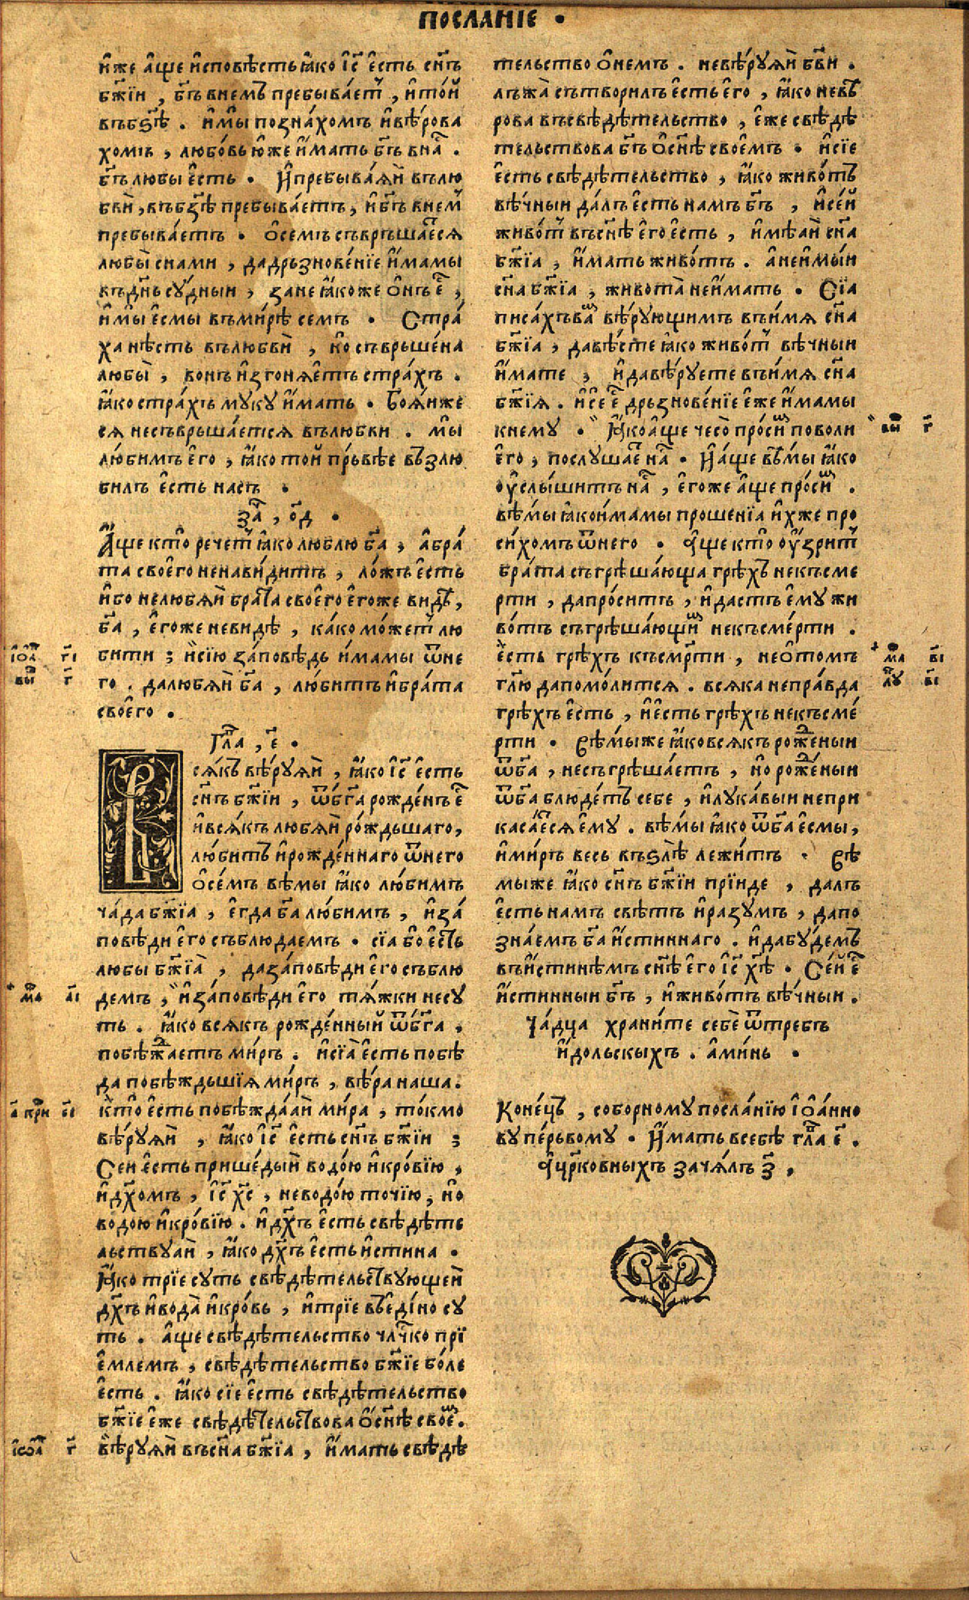 ПОСЛАНІЕ .
и҆́же а҆́ще и҆сповѣ́сть ꙗ҆́ко і҆с҃ є҆́сть сн҃ъ
бж҃іи , бг҃ъ внемъ пребыва́етъ , и҆то́й
въбѕ҃ѣ . и҆мы̀ позна́хомъ и҆вѣ́рова
хомъ , любо́вь ю҆́же и҆́мать бг҃ъ вна̑ .
бг҃ъ любы є҆́сть . И҆пребыва́ѧй въ лю
бви̇̀ , въбз҃ѣ пребыва́етъ , и҆бг҃ъ внем̾
пребыва́етъ . ѻ҆семъ съвръша́еⷭ҇сѧ
любы̀ снами , да дръзнове́нїе и҆́мамы
въд҃нь су́дныи , зане ꙗ҆́коже ѻ҆́нъ є҆́ⷭ҇ ,
и҆мы̀ є҆смы въми́рѣ семъ . Стра́
ха нѣ́сть въ любви̇̀ , но съвръше́на
любы̀ , вонъ и҆згонѧ́етъ стра́хъ .
ꙗ҆́ко стра́хъ муку и҆́мать . Боѧ́йже
сѧ несъвръша́етсѧ въ любви . мы̀
лю́бимъ є҆го , ꙗ҆́ко той пръ́вѣе възлю
билъ є҆́сть насъ .
за̑ , о҃д .
А҆́ще кто̀ рече́тъ ꙗ҆́ко люблю б҃а , а҆бра́
та своего̀ ненави́дитъ , ло́жъ є҆́сть
и҆́бо нелюбѧ́й брата своего̀ є҆го́же видѣ ,
б҃а , є҆го́же невидѣ , ка́ко мо́жетъ лю
бити ; и҆сїю̀ за́повѣдь и҆́мамы ѿне
го . да любѧ́й б҃а , лю́битъ и҆бра́та
своего̀ .
Гл҃а , є҃ .
Всѧ́къ вѣ́руѧй , ꙗ҆́ко і҆с҃ є҆́сть
сн҃ъ бж҃іи , ѿбг҃а рожде́нъ є҆́ⷭ҇
и҆всѧ́къ любѧ́й ро́ждьшаго ,
лю́битъ и҆рожде́ннаго ѿнего
ѻ҆се́мъ вѣ́мы ꙗ҆́ко лю́бимъ
ча́да бж҃їа , є҆гда б҃а лю́бимъ , и҆за́
повѣди є҆го съблюдаемъ . сїа́ бо є҆́сть
любы бж҃їа̀ , да за́повѣди є҆го съблю
демъ , и҆за́повѣди є҆го тѧ́жки несу
ть . ꙗ҆́ко всѧ́къ рожде́нный ѿбг҃а ,
побѣжⷣаетъ ми́ръ . и҆сїа̀ є҆́сть побѣ
да побѣ́ждьшїѧ ми́ръ , вѣ́ра наша .
кто̀ є҆́сть побѣжда́ѧй ми́ра , то́кмо
вѣ́руѧй , ꙗ҆́ко і҆с҃ є҆́сть сн҃ъ бж҃їи ;
Сей є҆́сть прише́дый водо́ю и҆кро́вїю ,
и҆дх҃омъ , і҆с҃ х҃с , неводо́ю то́чїю , но
водою и҆кро́вїю . и҆дх҃ъ є҆́сть свѣдѣте
льствуѧй , ꙗ҆́ко дх҃ъ є҆́сть и҆стина .
Ꙗ҆́ко трїе суть свѣдѣтельствующеи
дх҃ъ и҆вода̀ и҆кро́вь , и҆трїе въ є҆ди́но су
ть . а҆́ще свѣдѣтельство чл҃чко прї
е҆млемъ , свѣдѣтельство бж҃їе бо́ле
є҆́сть . ꙗ҆́ко сїе є҆́сть свѣдѣтельство
бж҃їе є҆́же свѣдѣтельствова ѻ҆сн҃ѣ свое̑ .
вѣ́руѧй въсн҃а бж҃їа , и҆́мать свѣдѣ
тельство ѻ҆немъ . невѣ́руѧй бг҃ви .
лъжа̀ сътворилъ є҆́сть е҆го , ꙗ҆́ко невѣ
рова въ свѣдѣтельство , є҆́же свѣдѣ
тельствова бг҃ъ ѻ҆сн҃ѣ свое́мъ . и҆сїе
є҆́сть свѣдѣтельство , ꙗ҆́ко живо́тъ
вѣ́чныи да́лъ є҆́сть намъ бг҃ъ , и҆сей
живо́т̾ въсн҃ѣ е҆го є҆́сть , и҆мѣ́ѧи сн҃а
бж҃їа , и҆́мать живо́тъ . а҆неимы́и
сн҃а бж҃їа , живота̀ неи҆мать . Сїа
писа́хъ ва̑ вѣ́рующимъ въи́мѧ сн҃а
бж҃їа , да вѣ́сте ꙗ҆́ко живо́т̾ вѣ́чныи
и҆́мате , и҆да вѣ́руете въи́мѧ сн҃а
бж҃їѧ . и҆се є҆́ⷭ҇ дръзнове́нїе є҆́же и҆́мамы
кнему . Ꙗ҆́ко а҆́ще чесо̀ про́си̑ поволи
є҆го , послуша́е на̑ . И҆а҆́ще вѣ́мы ꙗ҆́ко
ѹ҆слы́шитъ на̑ , є҆го́же а҆́ще про́си̑ .
вѣ́мы ꙗ҆́ко и҆́мамы прошенїа и҆́хже про
си́хомъ ѿнего . А҆́ще кто̀ ѹ҆́зритъ
бра́та съгрѣша́юща грѣ́хъ некъсме
рти , да про́ситъ , и҆да́стъ є҆му жи
во́тъ съгрѣша́ющи̑ некъсме́рти .
є҆́сть грѣ́хъ късмр҃ти , неѻ҆томъ
гл҃ю да помо́литсѧ . всѧка непра́вда
грѣ́хъ є҆́сть , и҆є҆сть грѣ́хъ некъсме́
рти . Вѣ́мы же ꙗ҆́ко всѧ́къ рожⷣе́ныи
ѿб҃а , несъгрѣша́етъ , но рожⷣе́ныи
ѿб҃а блюде́тъ себе , и҆лука́выи непри
каса́еⷮсѧ є҆му . вѣ́мы ꙗ҆́ко ѿб҃а є҆смы ,
и҆ми́ръ весь въѕлѣ̀ лежи́тъ . Вѣ́
мы же ꙗ҆́ко сн҃ъ бж҃їи прїиде , далъ
є҆́сть намъ свѣ́тъ и҆ра́зумъ , да по
зна́емъ б҃а и҆́стиннаго . и҆да бу́демъ
въи҆́стинѣмъ сн҃ѣ е҆го і҆с҃ х҃ѣ . Сей є҆́ⷭ҇
и҆́стинныи бг҃ъ , и҆живо́тъ вѣ́чныи .
Ча́дца храни́те себѐ ѿтребъ
и҆́дольскыхъ . а҆ми́нь .
Коне́цъ , соборному посла́нїю і҆ѡа́нно
ву пе́рьвому . И҆́мать всебѣ̀ гл҃а є҃ .
А҆цр҃ковныхъ зача́лъ з҃ ,
і҆ѡ́а г҃і
вы г҃
ма а҃і
а҃ кѡр є҃і
і҆ѡ́а г҃
вы г҃
ма в҃і
лу в҃і